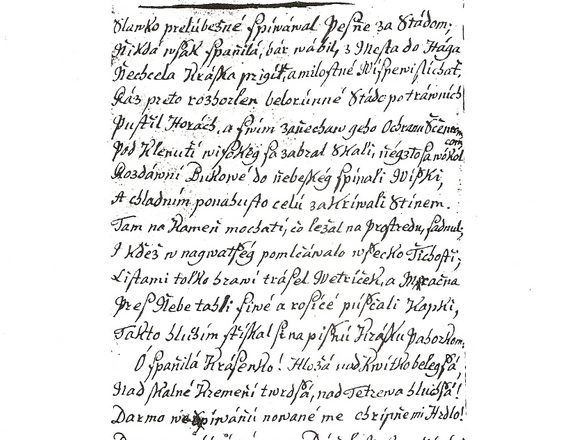 Slawko prelúbezné spíwáwal Pesňe za Stádom;
Nikda wšak spaňilá, bár wábil, z Mesta do Hága
Nechcela Kráska prigíť, a milostné Wispewi slichať,
Ráz preto rozhorlen belorúnné Stádo po tráwních
Pustil Horách, a swím zaňechaw geho Ochranu Ščenom,
Pod Klenutí wiskég sa zabral Skali, ňégžto sa wókol
Rozdáwní Bukowé do ňebeskég spínali Wíski,
A chladním ponahusto celú zakríwali Stínem.
Tam na Kameň mochatí, čo ležal na prostredu, sadnul;
I kďež w nagwatšég pomlčáwalo wšecko Tichosti;
Listami tolko hrawí trásel Wetríček, a Mračna
Pres Nebe tahli siwé a rosicé púščali Kapki,
Takto hluším stískal si na pišnú Krásku Pahorkom.
Ó spaňilá Krásenko! Hložá nad kwítko belegšá,
Nad skalné Kremeňí twrdšá, nad Tetrewa hluchšá!
Darmo nowané me chripňe mi Hrdlo!